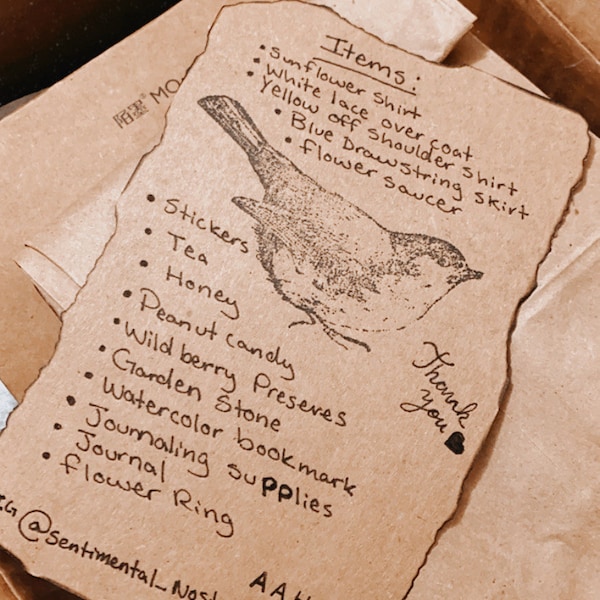 Items:
• Sunflower Shirt
• White lace over coat
• Yellow off shoulder shirt
• Blue Drawstring Skirt
• flower saucer
• Stickers
• Tea
• Honey
• Peanut candy
• Wild berry Preserves
• Garden Stone
• Watercolor bookmark
• Journaling supplies
• Journal
• flower Ring
Thank
you
IG @sentimental_Nos
陌墨 MO